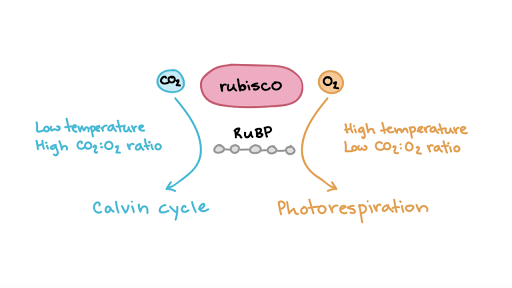 CO₂
rubisco
O₂
RuBP
Low temperature
High CO₂:O₂ ratio
High temperature
Low CO₂:O₂ ratio
Calvin cycle
Photorespiration